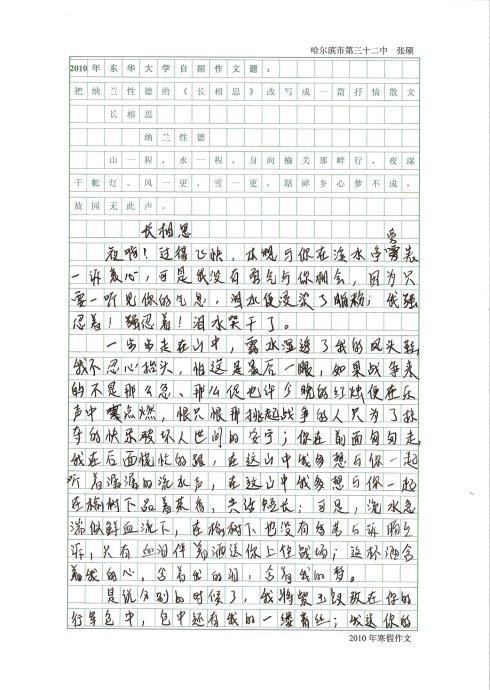 哈尔滨市第三十二中 张硕
2010年东华大学自招作文题：
把纳兰性德的《长相思》改写成一篇抒情散文
长相思
纳兰性德
山一程，水一程，身向榆关那畔行，夜深
千帐灯。风一更，雪一更，聒碎乡心梦不成，
故园无此声。
长相思
夜啊！过得飞快，本想与你在溪水
一诉衷心，可是我没有勇气与你相会，因为只
要一听见你的气息，泪水便浸染了胭脂；我强
忍着！强忍着！泪水哭干了。
一步步走在山中，露水湿透了我的凤头鞋
我不忍心抬头，怕这是最后一眼，如果战争来
的不是那么急、那么促也许今晚的红烛便在乐
声中点燃，恨只恨那挑起战争的人只为了掠
夺的快乐破坏人世间的安宁；你在前面匆匆走
我在后面慌忙的跟，在这山中我多想与你一起
听着潺潺的流水声，在这山中我多想与你一起
在榆树下品着茶香，共话短长；可是，流水急
湍似鲜血流下，在榆树下也没有
诉，只有血泪伴着酒送你上住战场；这杯酒含
着我的心，含着我的泪，含着我的梦。
是说分别的时候了，我将紫玉钗放在你的
行军包中，包中还有我的一缕青丝；我送你的
2010年寒假作文